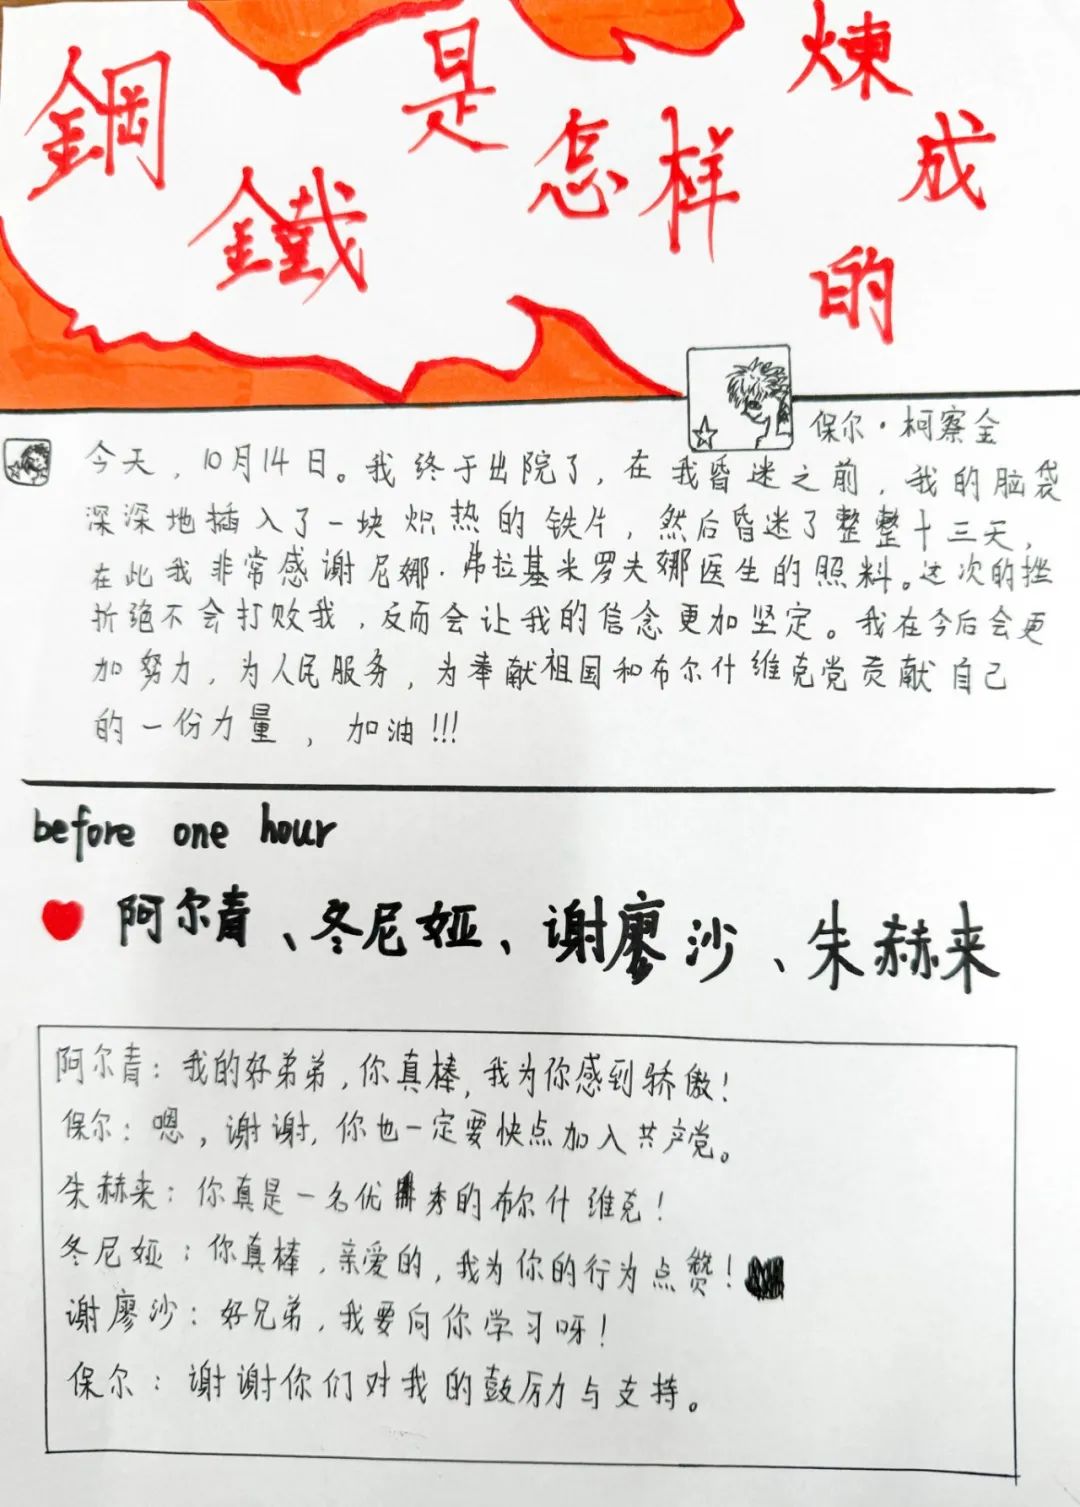 鋼鐵是怎样煉成的
保尔·柯察金
今天，10月14日。我终于出院了，在我昏迷之前，我的脑袋
深深地插入了一块炽热的铁片，然后昏迷了整整十三天，
在此我非常感谢尼娜·弗拉基米罗夫娜医生的照料。这次的挫
折绝不会打败我，反而会让我的信念更加坚定。我在今后会更
加努力，为人民服务，为奉献祖国和布尔什维克党贡献自己
的一份力量，加油!!!
before one hour
阿尔青、冬尼娅、谢廖沙、朱赫来
阿尔青：我的好弟弟，你真棒，我为你感到骄傲！
保尔：嗯，谢谢，你也一定要快点加入共产党。
朱赫来：你真是一名优秀的布尔什维克！
冬尼娅：你真棒，亲爱的，我为你的行为点赞！
谢廖沙：好兄弟，我要向你学习呀！
保尔：谢谢你们对我的鼓厉力与支持。